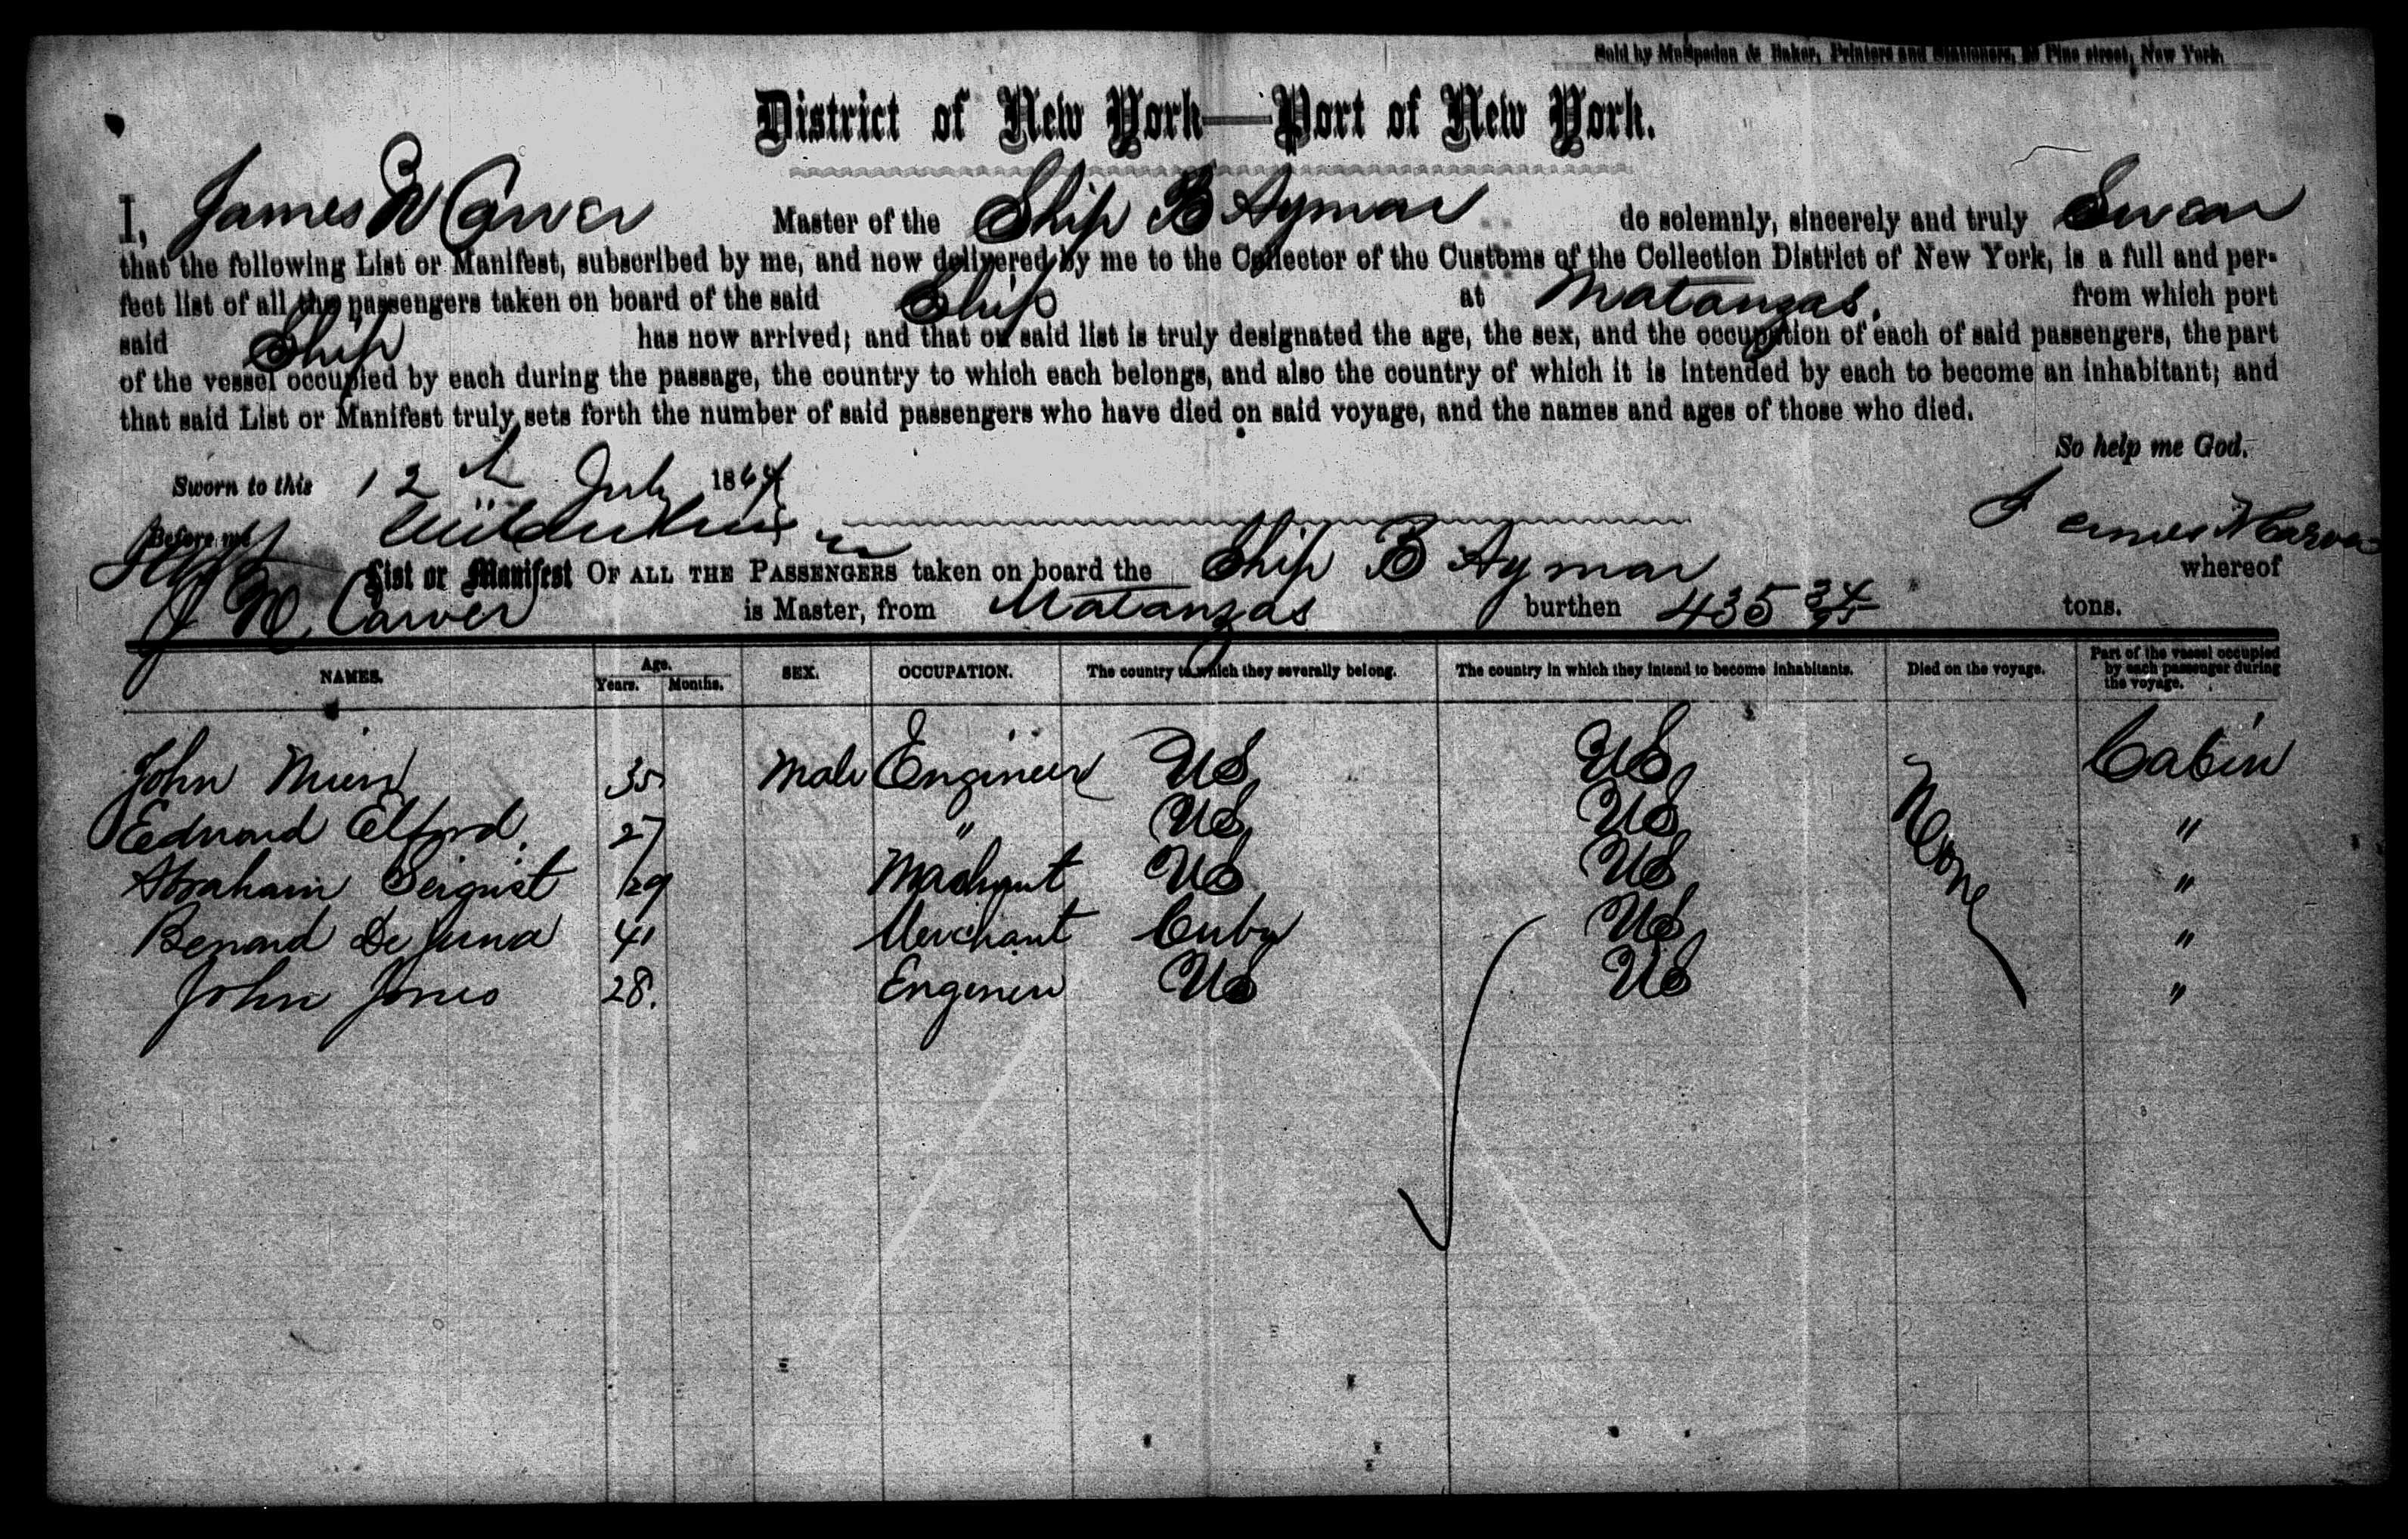 Sold by McSpedon & Baker, Printers and Stationers, Pine street, New York.
District of New York—Port of New York.
I, James W Carver Master of the Ship B Aymar do solemnly, sincerely and truly Swear
that the following List or Manifest, subscribed by me, and now delivered by me to the Collector of the Customs of the Collection District of New York, is a full and per-
fect list of all the passengers taken on board of the said Ship at Matanzas. from which port
said Ship has now arrived; and that on said list is truly designated the age, the sex, and the occupation of each of said passengers, the part
of the vessel occupied by each during the passage, the country to which each belongs, and also the country of which it is intended by each to become an inhabitant; and
that said List or Manifest truly sets forth the number of said passengers who have died on said voyage, and the names and ages of those who died.
So help me God.
Sworn to this 12th July 1864
Before me James W Carver
List or Manifest OF ALL THE PASSENGERS taken on board the Ship B Aymar whereof
J W. Carver is Master, from Matanzas burthen 435 34/95 tons.
NAMES. Age. Years. Months. SEX. OCCUPATION. The country to which they severally belong. The country in which they intend to become inhabitants. Died on the voyage. Part of the vessel occupied by each passenger during the voyage.
John 35 Male Engineer US US None Cabin
Edward Elford. 27 " US US "
Abraham Seigrist 29 US US "
Benard De Juna 41 Merchant Cuba US "
John Jones 28. Engineer US US "